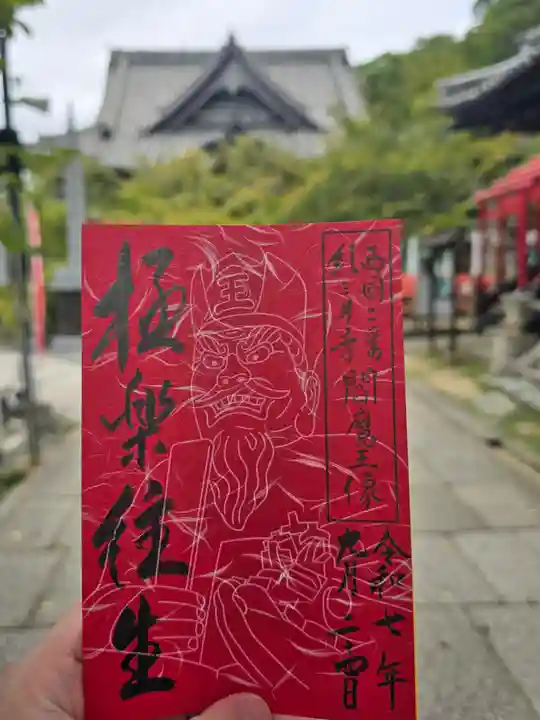 西国二番
紀三井寺閻魔王像
令和七年
九月二十四日
王
極楽往生